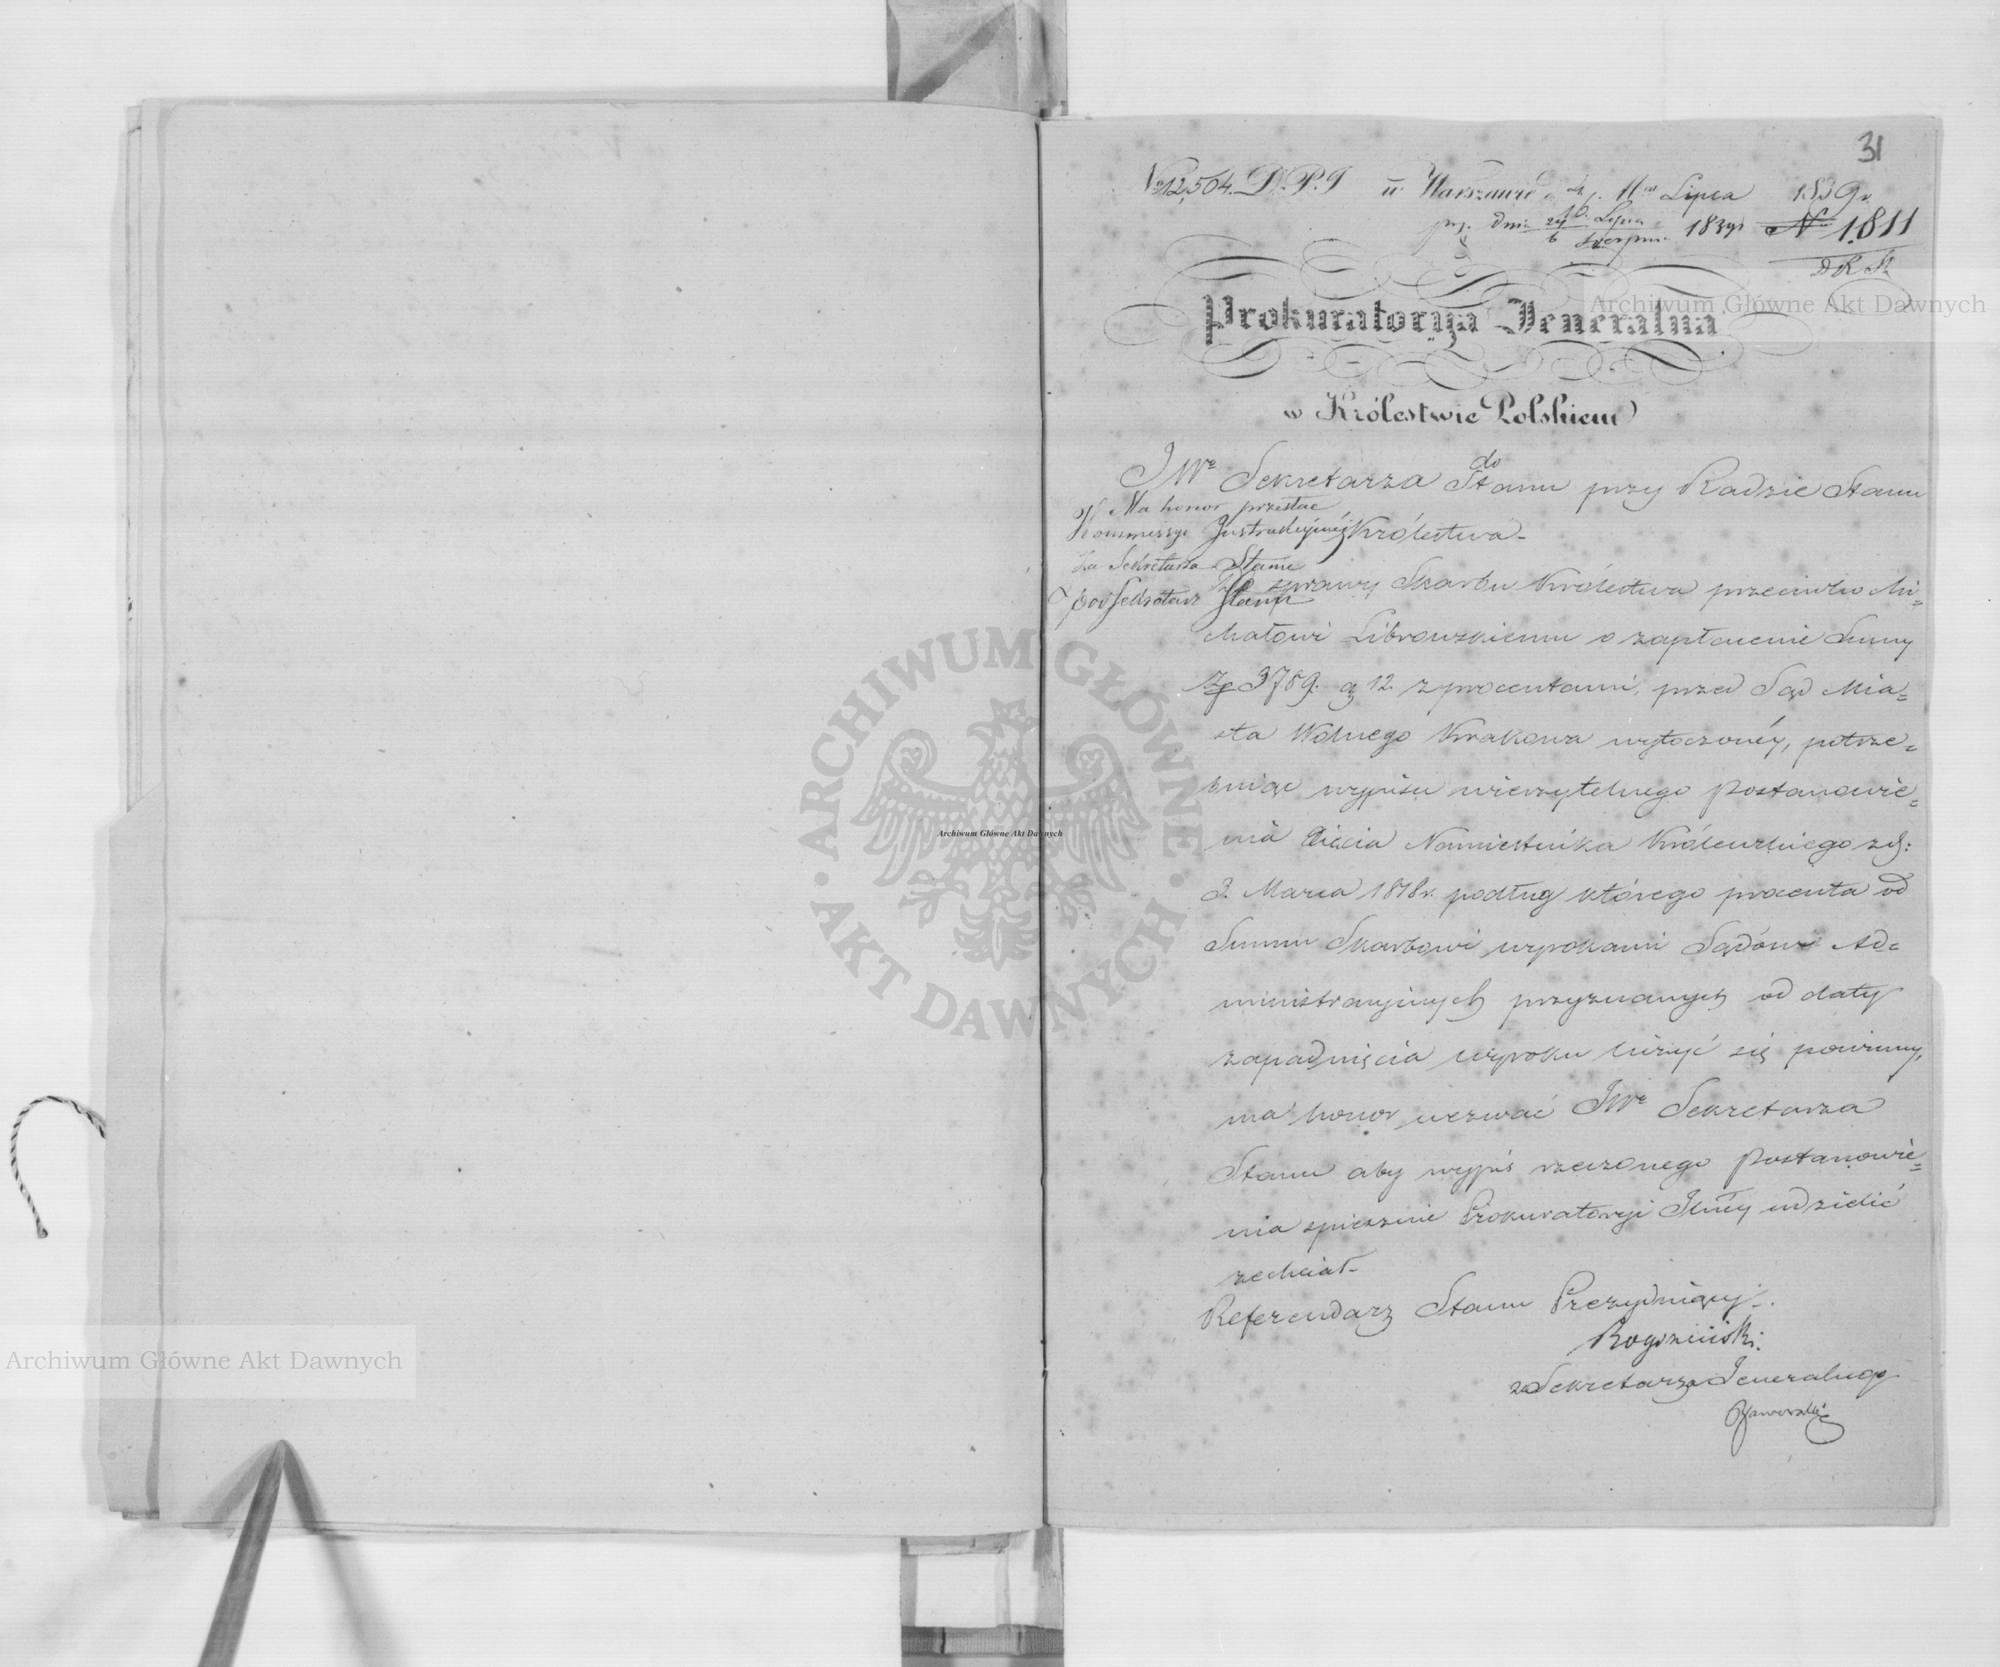 31
No 12,504. D. P. I w Warszawie d. 11 Lipca 1839 r.
dnia Lipca 1839 r. No 1811
6 Sierpnia
D R St
Prokuratorya Jeneralna
w Królestwie Polskiem
do
JWo Sekretarza Stanu przy Radzie Stanu
Królestwa.
Ma honor przesłać
Kommissyi Instrukcyjnéj
Za Sekretarza Stanu
Podsekretarz Stanu
W sprawie Skarbu Królestwa przeciwko Mi=
chałowi Librowskiemu o zapłacenie Summy
Zp 3789. g 12. z procentami, przed Sąd Mia=
sta Wolnego Krakowa wytoczonéy, potrze=
buiąc wypisu wierzytelnego Postanowie=
nia Xięcia Namiestnika Królewskiego z d:
3. Marca 1818 r. podług którego procenta od
Summ Skarbowi wyrokami Sądów Ad=
ministracyinych przyznanych od daty
zapadnięcia wyroku liczyć się powinny,
ma honor wezwać JWo Sekretarza
Stanu aby wypis rzeczonego Postanowie=
nia spiesznie Prokuratoryi Jlnéy udzielić
zechciał.
Referendarz Stanu Prezyduiący.
za Sekretarza Jeneralnego
Jaworski
Archiwum Główne Akt Dawnych
Archiwum Główne Akt Dawnych
ARCHIWUM GŁÓWNE AKT DAWNYCH
Archiwum Główne Akt Dawnych